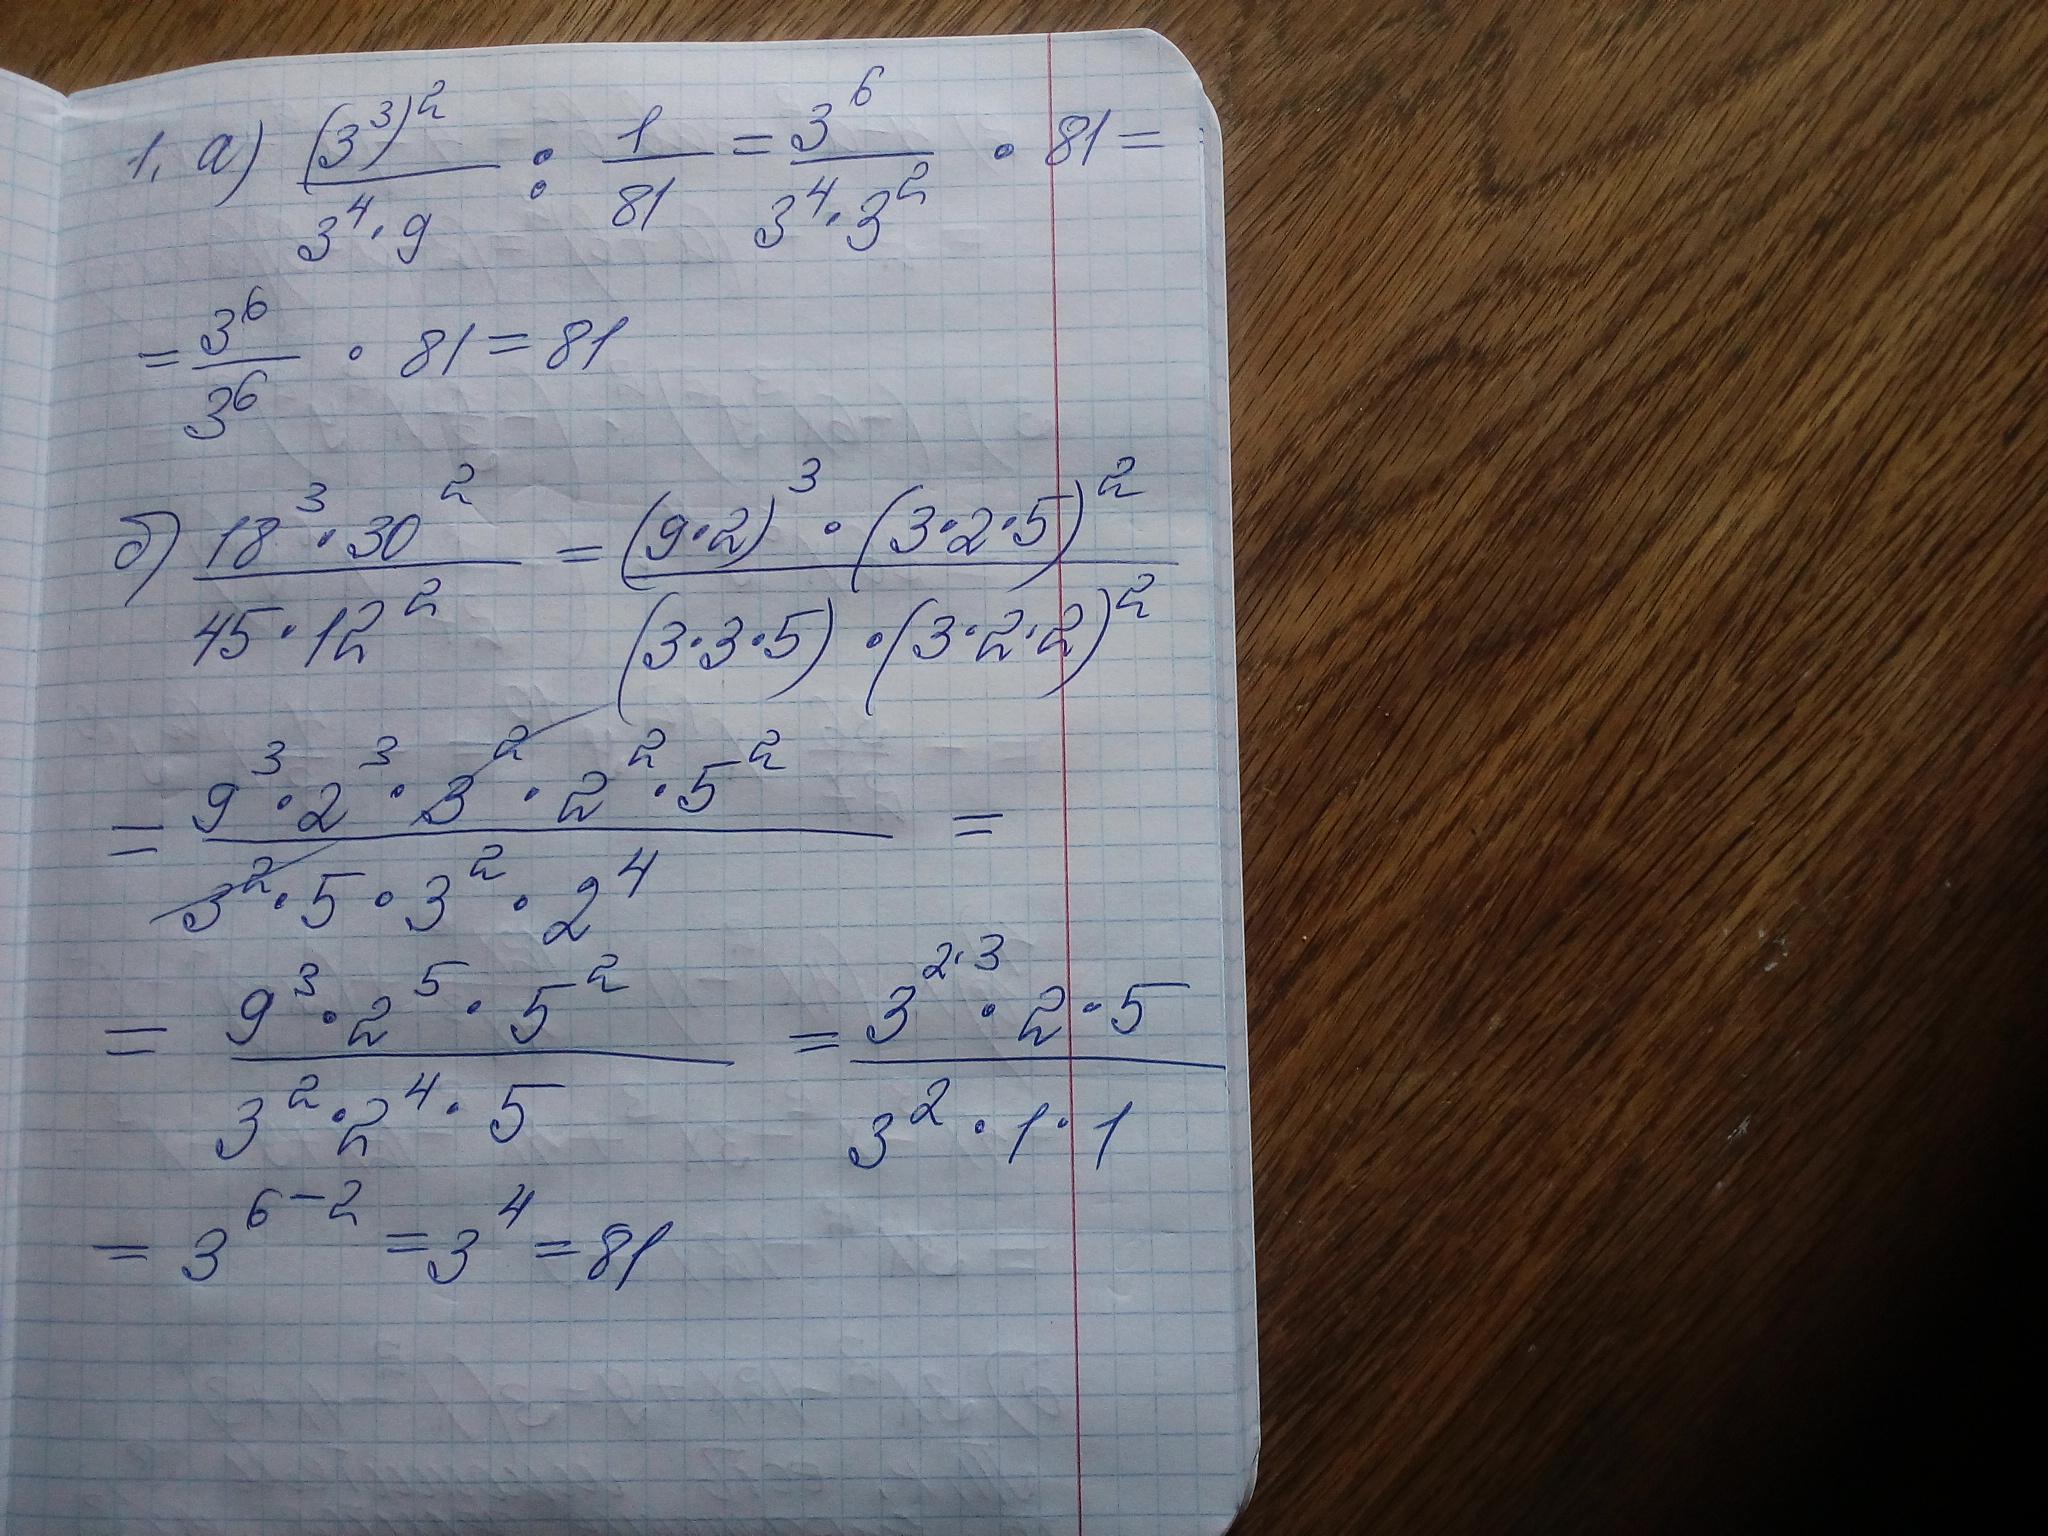 1. а) (3³)²/(3⁴·9) : 1/81 = 3⁶/(3⁴·3²) · 81 =
= 3⁶/3⁶ · 81 = 81
б) (18³·30²)/(45·12²) = ((9·2)³·(3·2·5)²)/((3·3·5)·(3·2·2)²)
= (9³·2³·3²·2²·5²)/(3²·5·3²·2⁴) =
= (9³·2⁵·5²)/(3²·2⁴·5) = (3²·³·2·5)/(3²·1·1)
= 3⁶⁻² = 3⁴ = 81